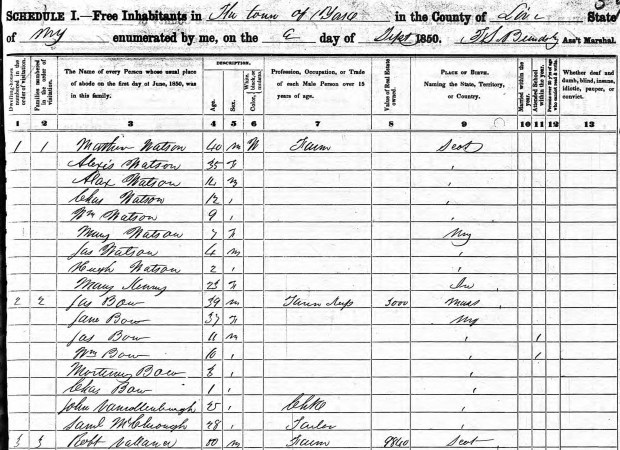 SCHEDULE I.—Free Inhabitants in The town of in the County of Liv State
of Ny enumerated by me, on the 6 day of Sept 1850. Ass't Marshal.
Dwelling-houses numbered in the order of visitation.
Families numbered in the order of visitation.
The Name of every Person whose usual place of abode on the first day of June, 1850, was in this family.
DESCRIPTION.
Age.
Sex.
Color, White, black, or mulatto.
Profession, Occupation, or Trade of each Male Person over 15 years of age.
Value of Real Estate owned.
PLACE OF BIRTH.
Naming the State, Territory, or Country.
Married within the year.
Attended School within the year.
Persons over 20 y'rs of age who cannot read & write.
Whether deaf and dumb, blind, insane, idiotic, pauper, or convict.
1 2 3 4 5 6 7 8 9 10 11 12 13
1 1 Watson 40 m W Farm Scot
Alexis Watson 35 F "
Alax Watson 14 m "
Chas Watson 12 " "
Wm Watson 9 " "
Mary Watson 7 F Ny
Jas Watson 4 m "
Hugh Watson 2 " "
Mary Kenny 23 F Ire
2 2 Jas Bow 39 m Farm 3000 Mass
Jane Bow 37 F Ny
Jas Bow 11 m " 1
Wm Bow 10 " " 1
Mortimer Bow 8 " "
Chas Bow 1 " "
John 25 "
Saml 28 " Tailor "
3 3 Robt m Farm 9840 Scot